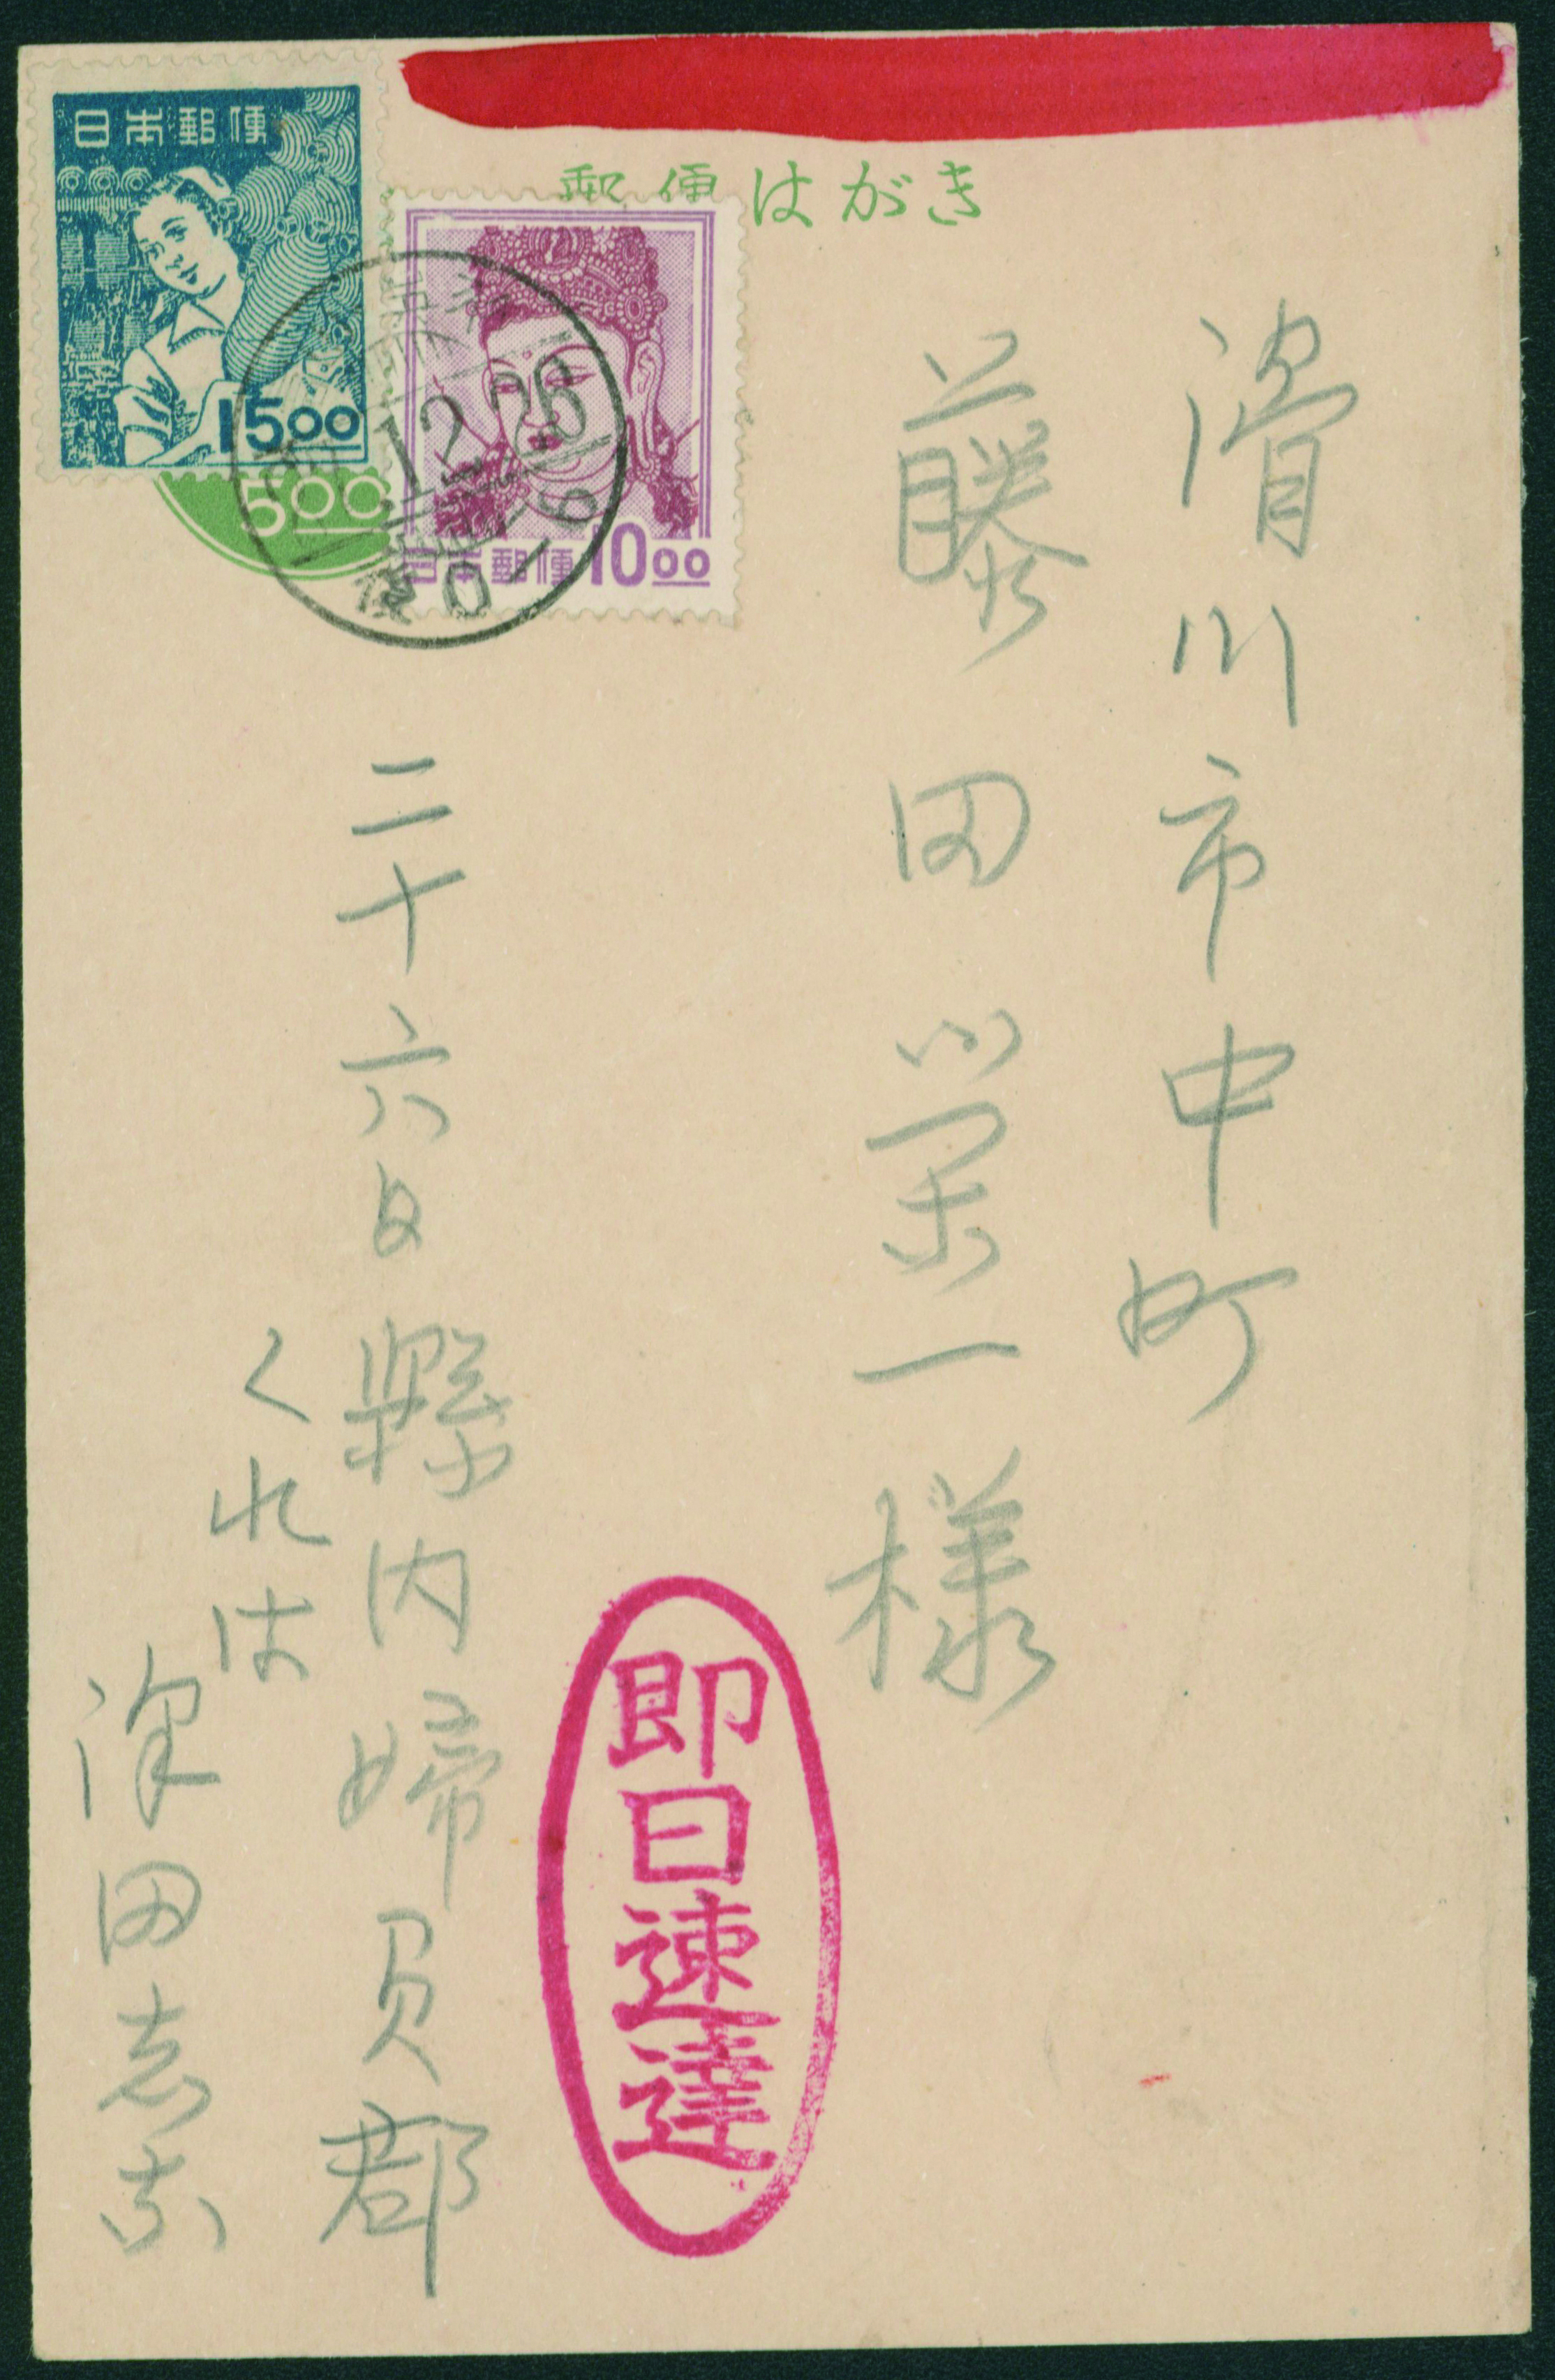 日本郵便
1500
郵便はがき
500
日本郵便 1000
12.26
滑川市中町
藤田栄一様
即日速達
二十六日 縣内婦負郡
くれは
澤田志